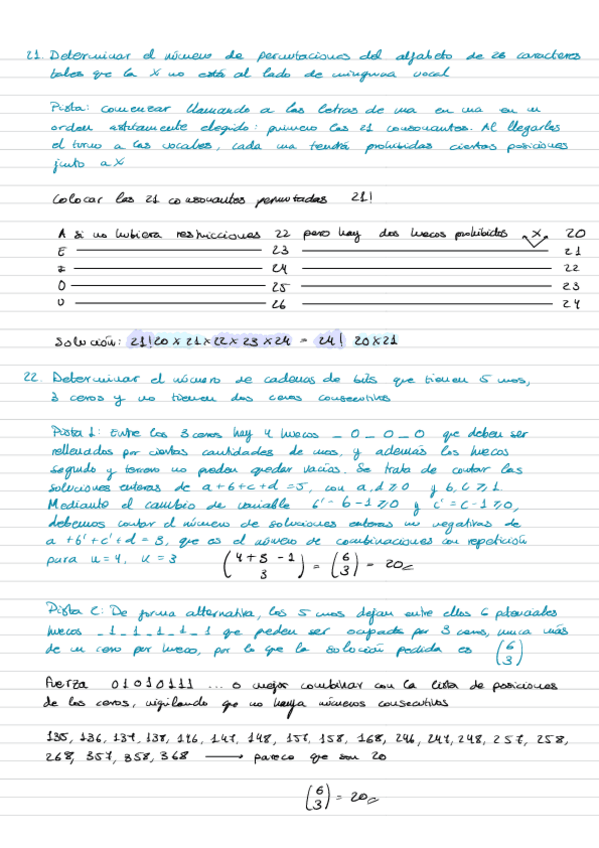 21. Determinar el número de permutaciones del alfabeto de 26 caracteres
tales que la X no está al lado de ninguna vocal
Pista: comenzar llamando a las letras de una en una en un
orden astutamente elegido: primero las 21 consonantes. Al llegarles
el turno a las vocales, cada una tendrá prohibidas ciertas posiciones
junto a X
Colocar las 21 consonantes permutadas 21!
A si no hubiera restricciones 22 pero hay dos huecos prohibidos X 20
E 23 21
I 24 22
O 25 23
U 26 24
Solución: 21! 20 x 21 x 22 x 23 x 24 = 24! 20x21
22. Determinar el número de cadenas de bits que tienen 5 unos,
3 ceros y no tienen dos ceros consecutivos
Pista 1: Entre los 3 ceros hay 4 huecos _ 0 _ 0 _ 0 que deben ser
rellenados por ciertas cantidades de unos, y además los huecos
segundo y tercero no pueden quedar vacíos. Se trata de contar las
soluciones enteras de a+b+c+d=5, con a,d ≥ 0 y b,c ≥ 1.
Mediante el cambio de variable b'=b-1 ≥ 0 y c'=c-1 ≥ 0,
debemos contar el número de soluciones enteras no negativas de
a+b'+c'+d = 3, que es el número de combinaciones con repetición
para n=4, k=3 (4+3-1 3) = (6 3) = 20
Pista 2: De forma alternativa, los 5 unos dejan entre ellos 6 potenciales
huecos _1_1_1_1_1 que pueden ser ocupados por 3 ceros, nunca más
de un cero por hueco, por lo que la solución pedida es (6 3)
Fuerza 01010111 ... o mejor combinar con la lista de posiciones
de los ceros, vigilando que no haya números consecutivos
135, 136, 137, 138, 146, 147, 148, 157, 158, 168, 246, 247, 248, 257, 258,
268, 357, 358, 368 → parece que son 20
(6 3) = 20